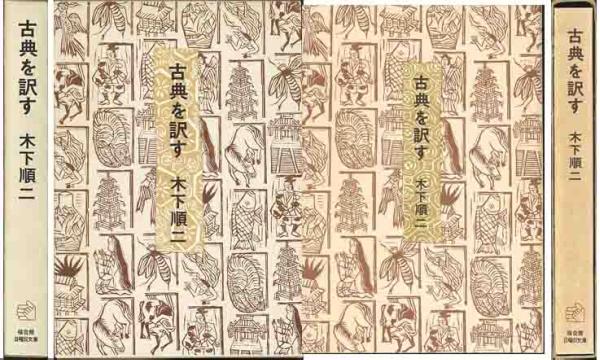 古典を訳す
木下順二
福音館
日曜日文庫
古典を訳す
木下順二
古典を訳す
木下順二
古典を訳す
木下順二
福音館
日曜日文庫